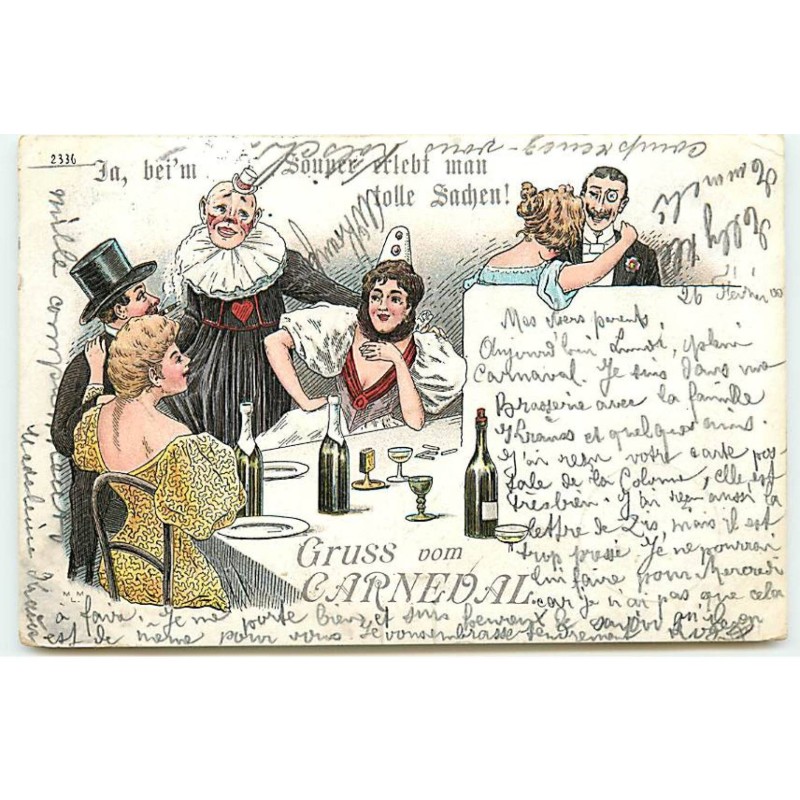 2336
Ja, bei'm Souper erlebt man
tolle Sachen!
comprenez-vous
26 Février 00
Mes chers parents,
Aujourd'hui Lundi, plein
Carnaval. Je suis dans une
Brasserie avec la famille
Krauss et quelques amis.
J'ai reçu votre carte pos-
tale de la Colonne, elle est
très bien. J'ai reçu aussi la
lettre de mais il est
trop pressé. Je ne pourrai
lui faire pour Mercredi
car je n'ai pas que cela
à faire. Je me porte bien et suis heureux de savoir qu'il en
est de même pour vous Je vous embrasse tendrement
Gruss vom
CARNEVAL
MLM
mille
Madeleine